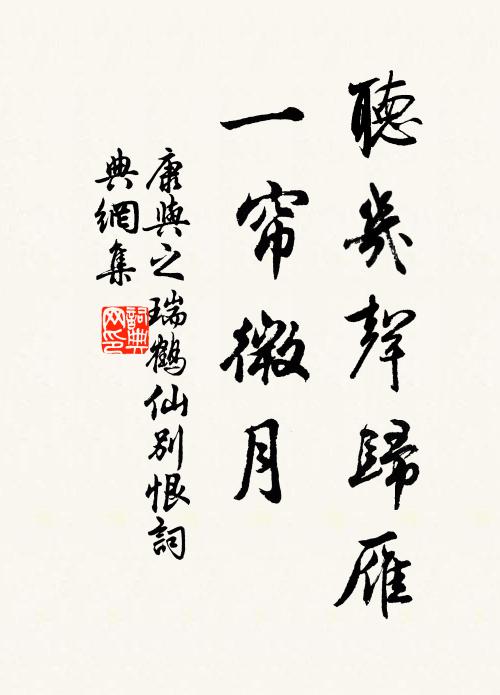 聽幾聲歸雁
一帘微月
康與之瑞鶴仙別恨詞
典網集
詞典网印